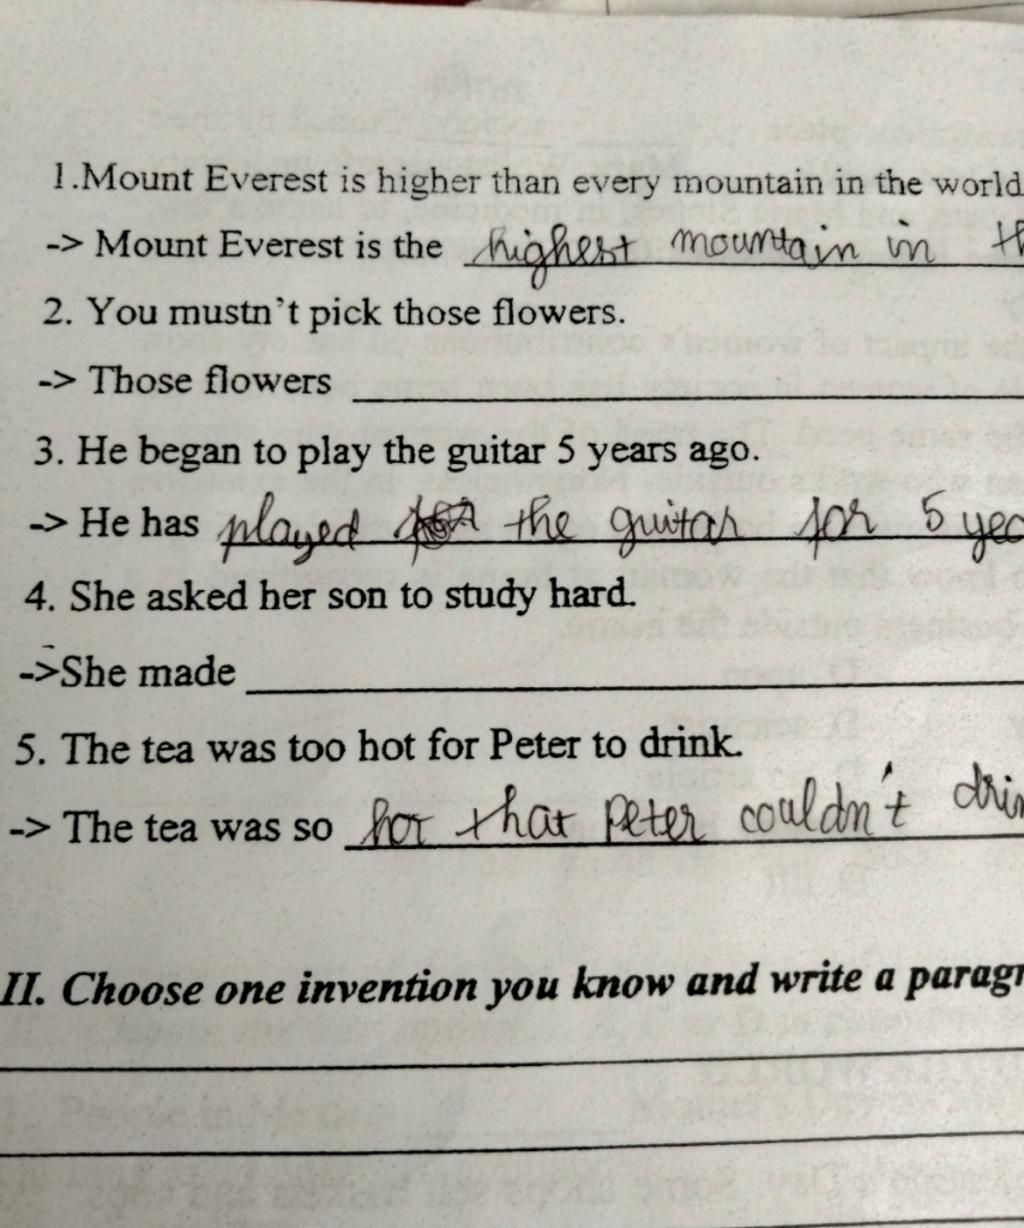 1.Mount Everest is higher than every mountain in the world
-> Mount Everest is the highest mountain in
2. You mustn't pick those flowers.
-> Those flowers
3. He began to play the guitar 5 years ago.
-> He has played the guitar for 5
4. She asked her son to study hard.
->She made
5. The tea was too hot for Peter to drink.
-> The tea was so hot that Peter couldn't
II. Choose one invention you know and write a